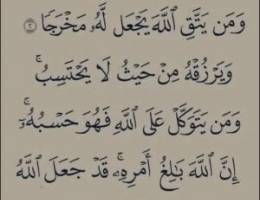 وَمَن يَتَّقِ ٱللَّهَ يَجْعَل لَّهُۥ مَخْرَجًا ٢
وَيَرْزُقْهُ مِنْ حَيْثُ لَا يَحْتَسِبُ ۚ
وَمَن يَتَوَكَّلْ عَلَى ٱللَّهِ فَهُوَ حَسْبُهُۥٓ ۚ
إِنَّ ٱللَّهَ بَٰلِغُ أَمْرِهِۦ ۚ قَدْ جَعَلَ ٱللَّهُ